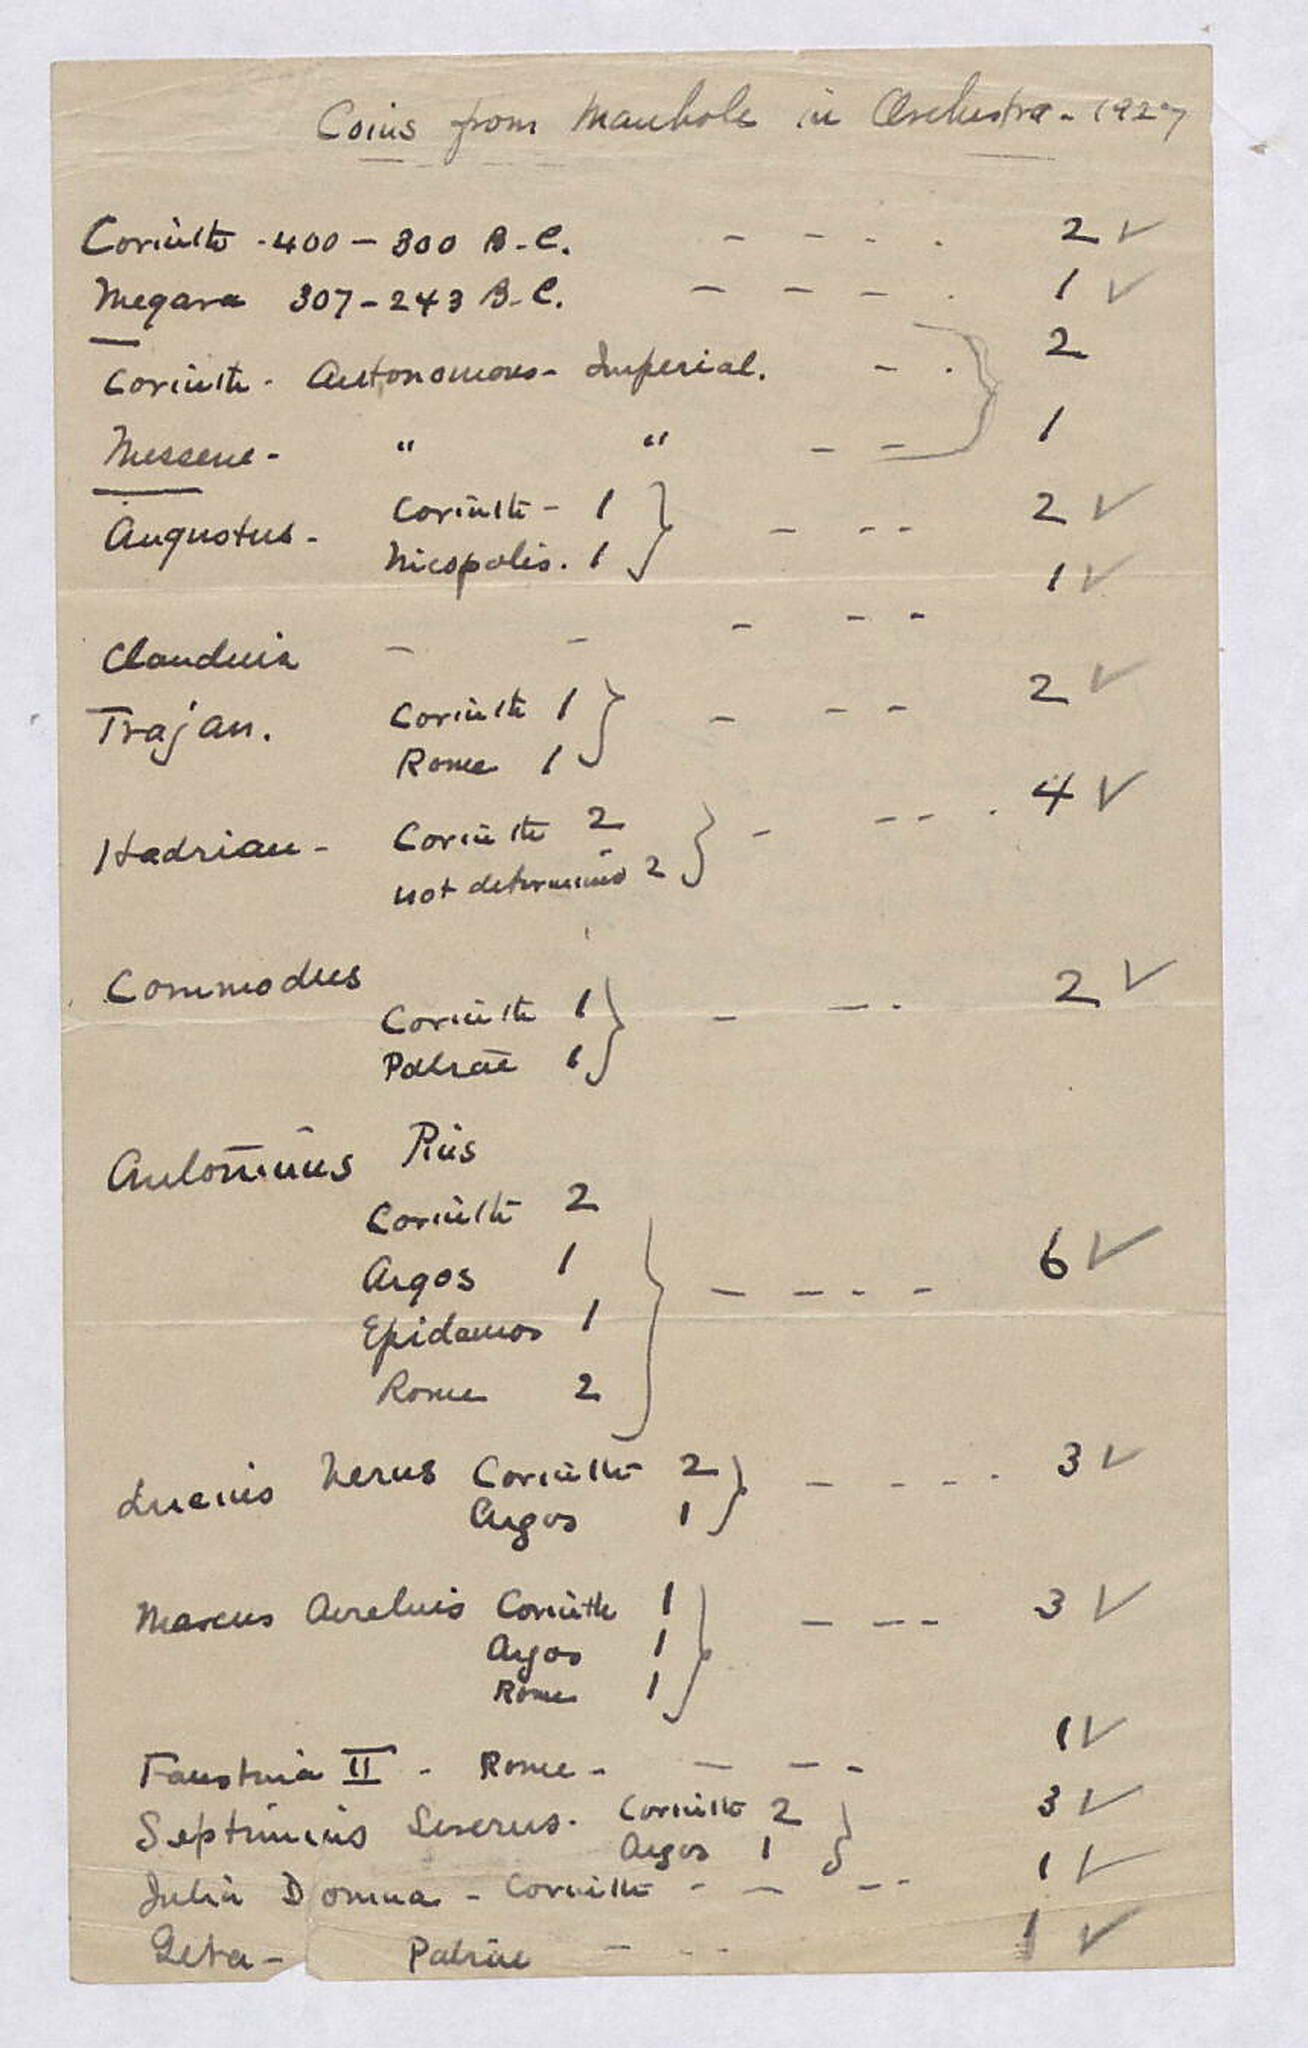 Coins from Manhole in Orchestra - 1927
Corinth - 400 - 300 B.C. - - - . 2 ✓
Megara 307 - 243 B.C. - - - . 1 ✓
Corinth - Autonomous - Imperial. - . } 2
Messene - " " - - 1
Augustus - Corinth - 1 } - - - 2 ✓
Nicopolis. 1
Claudius - - - - - 1 ✓
Trajan. Corinth 1 } - - - 2 ✓
Rome 1
Hadrian - Corinth 2 } - - - . 4 ✓
not determined 2
Commodus 2 ✓
Corinth 1 } - - .
Patrae 1
Antoninus Pius
Corinth 2
Argos 1 } - - - - 6 ✓
Epidauros 1
Rome 2
Lucius Verus Corinth 2 } - - - - 3 ✓
Argos 1
Marcus Aurelius Corinth 1 } - - - 3 ✓
Argos 1
Rome 1
Faustina II - Rome - - - - 1 ✓
Septimius Severus - Corinth 2 } 3 ✓
Argos 1
Julia Domna - Corinth - - - - 1 ✓
Geta - Patrae - - - 1 ✓